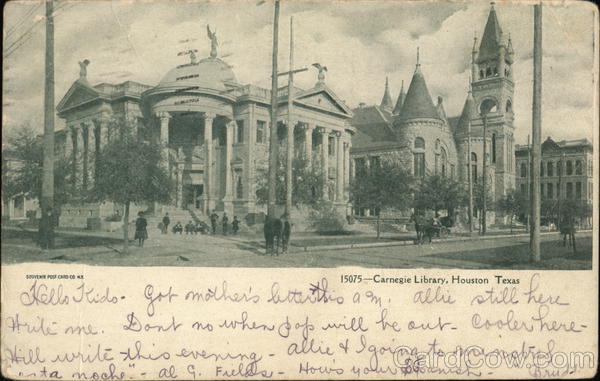 SOUVENIR POST CARD CO. N.Y.
15075—Carnegie Library, Houston Texas
Hello Kid- Got mother's letter this a.m. allie still here
Write me. Dont no when pop will be out- Cooler here-
Will write this evening- allie & I going to minstrel
"esta noche"- al G. Fields- Hows your Spanish
CardCow.com